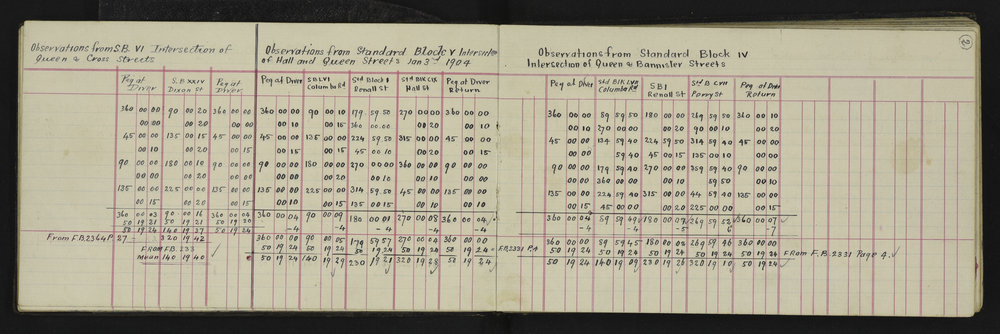 Observations from S.B. VI Intersection of
Queen & Cross Streets
Peg at Diver S.B. XXIV Dixon St Peg at Diver
360 00 00 90 00 20 360 00 00
00 00 00 20 00 00
45 00 00 135 00 15 45 00 00
00 10 00 20 00 15
90 00 00 180 00 10 90 00 00
00 00 00 20 00 00
135 00 00 225 00 00 135 00 00
00 15 00 20 00 15
360 00 03 90 00 16 360 00 04
50 19 24 50 19 21 50 19 20
50 19 27 140 19 37 50 19 24
From F.B. 2364 P 27 - 320 19 42
FROM F.B. 233
Mean 140 19 40
Observations from Standard Block V Intersection
of Hall and Queen Streets Jan 3rd 1904
Peg at Diver SB LVI Columba Rd Std Block 1 Renall St Std Blk CIX Hall St Peg at Diver Return
360 00 00 90 00 10 179 59 50 270 00 00 360 00 00
00 10 00 15 360 00 00 00 20 00 10
45 00 00 135 00 00 224 59 50 315 00 00 45 00 00
00 15 00 15 45 00 10 00 20 00 15
90 00 00 180 00 00 270 00 00 360 00 00 90 00 00
00 00 00 20 00 10 00 20 00 00
135 00 00 225 00 00 314 59 50 45 00 00 135 00 00
00 10 00 10 135 00 15 00 10 00 15
360 00 04 90 00 09 180 00 01 270 00 08 360 00 04
-4 -4 -4 -4 -4
360 00 00 90 00 05 179 59 57 270 00 04 360 00 00
50 19 24 50 19 24 50 19 24 50 19 24 50 19 24
50 19 24 140 19 29 230 19 21 320 19 28 50 19 24
Observations from Standard Block IV
Intersection of Queen & Bannister Streets
Peg at Diver Std Blk LVII Columba Rd S B I Renall St Std B CVII Perry St Peg at Diver Return
360 00 00 89 59 50 180 00 00 269 59 50 360 00 10
00 10 270 00 00 00 20 90 00 10 00 20
45 00 00 134 59 40 224 59 50 314 59 40 45 00 00
00 00 59 40 45 00 15 135 00 10 00 00
90 00 00 179 59 40 270 00 00 359 59 40 90 00 00
00 00 360 00 00 00 10 59 50 00 10
135 00 00 224 59 40 315 00 00 44 59 40 135 00 00
00 15 45 00 00 00 20 225 00 00 00 15
360 00 04 89 59 49 180 00 07 269 59 52 360 00 07
-4 -4 -5 6 -7
360 00 00 89 59 45 180 00 02 269 59 46 360 00 00
F.B. 2331 P.4 50 19 24 50 19 24 50 19 24 50 19 24 50 19 24 FROM F.B. 2331 Page 4.
50 19 24 140 19 09 230 19 26 320 19 10 50 19 24